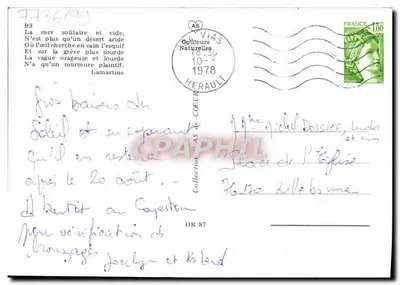 7736/99
93
La mer solitaire et vide,
N'est plus qu'un désert aride
Où l'œil cherche en vain l'esquif
Et sur la grève plus sourde
La vague orageuse et lourde
N'a qu'un murmure plaintif.
Lamartine
AS
Couleurs
Naturelles
VIAS
10-
1978
HERAULT
FRANCE
1,00
Gros baisers du
Soleil et en espérant
qu'il en restera
après le 20 août. -
A bientôt au
pour vérification de
bronzages Jocelyn et
Mme Michel
et
Place de l'Eglise
76170 Lillebonne
Collection AS DE COEUR
OR 87
CPAPHIL